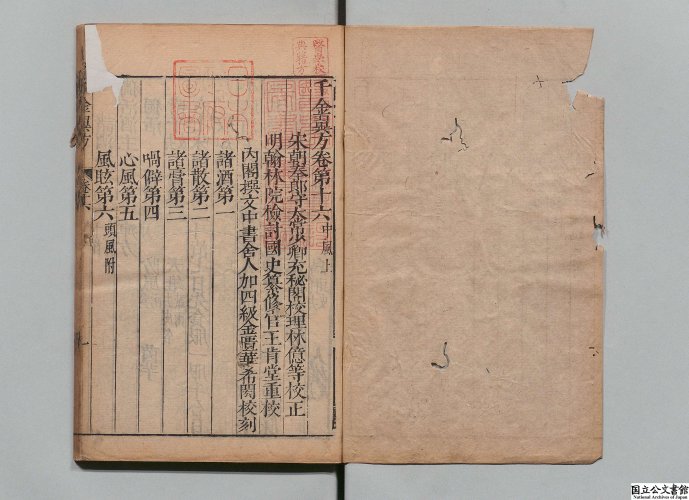 千金翼方卷第十六 中風上
宋朝奉郎守太常少卿充秘閣校理林億等校正
明翰林院檢討國史纂修官王肯堂重校
內閣撰文中書舍人加四級金匱華希閎校刻
諸酒第一
諸散第二
諸膏第三
喎僻第四
心風第五
風眩第六 頭風附
金翼方
卷十六
一
国立公文書館
National Archives of Japan